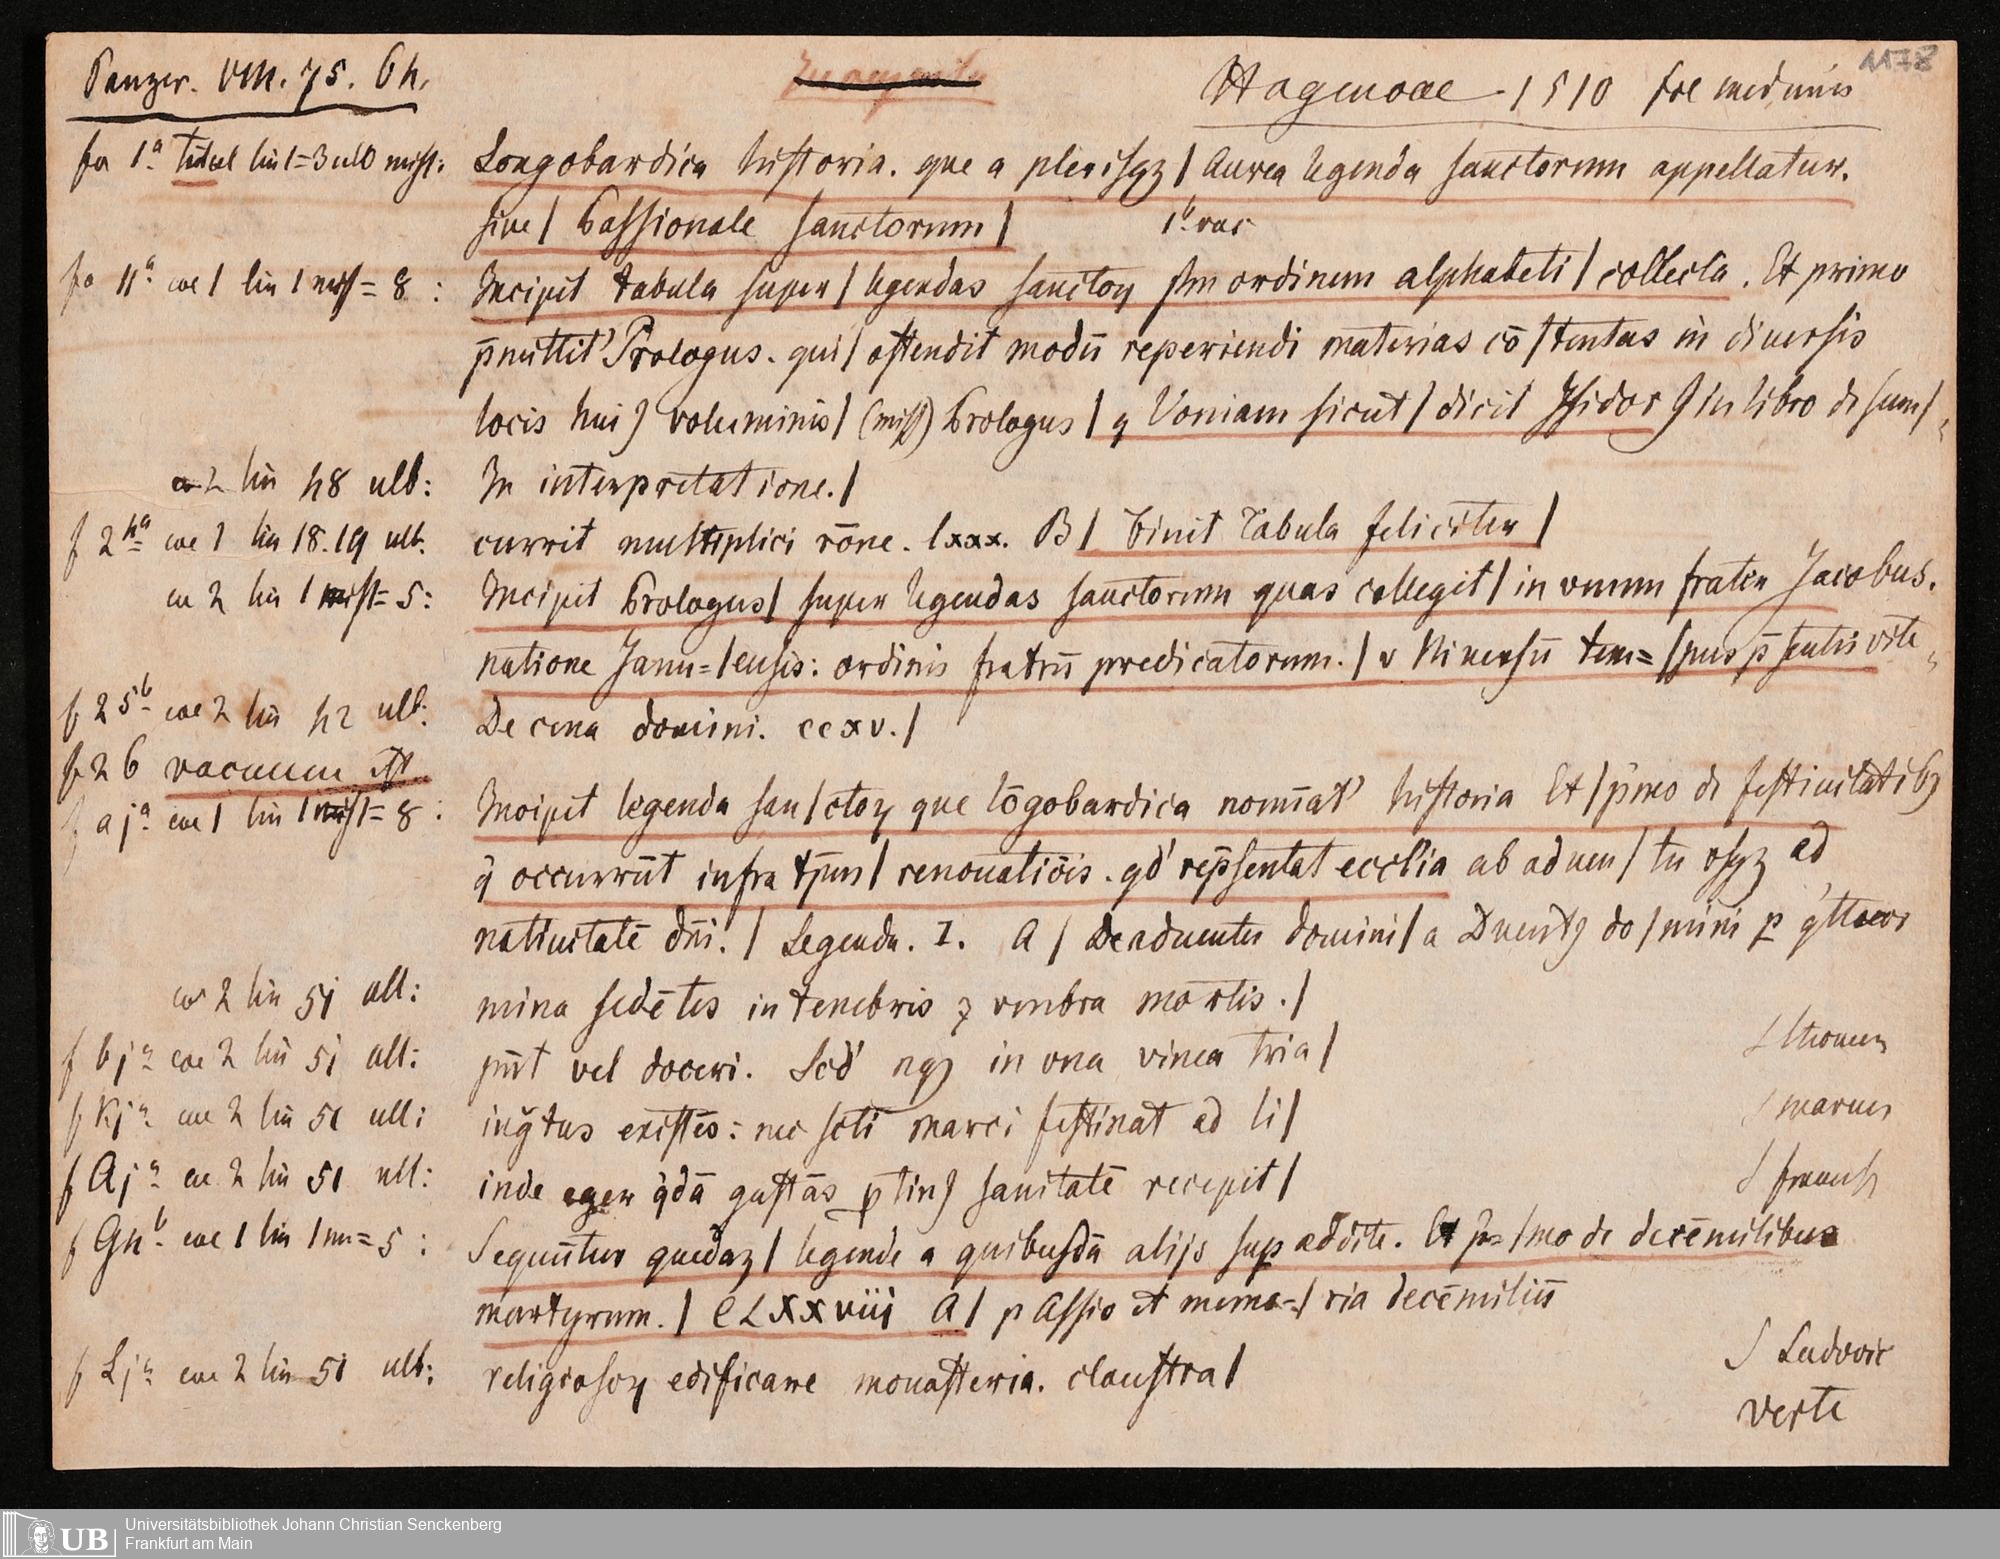 Panzer. VII. 75. 64.
Hagenoae 1510 fol medium
1178
fa 1a titul lin 1=3 ult miss: Longobardica historia. que a plerisqz / Aurea legenda sanctorum appellatur.
sive / Passionale sanctorum / 1b vac
fo 11a col 1 lin 1 miss = 8 : Incipit tabula super / legendas sanctoꝝ scdm ordinem alphabeti / collecta. Et primo
p̄mittit' Prologus. qui / ostendit modū reperiendi materias cō/tentas in diuersis
locis huiꝰ voluminis / (miss) Prologus / q Voniam sicut / dicit Isidorꝰ in libro de sum/
2 lin 48 ult: In interpretatione. /
f 24a col 1 lin 18.19 ult. currit multiplici rōne. lxxx. B / Finit Tabula feliciter /
co 2 lin 1 miss = 5: Incipit Prologus / super legendas sanctorum quas collegit / in vnum frater Jacobus.
natione Janu=/ensis: ordinis fratrū predicatorum. / v Niuersū tem=/pus p̄sentis vite
f 25b col 2 lin 42 ult: De cena domini. ccxv. /
f 26 vacuum est
f aja col 1 lin 1 miss = 8 : Incipit legenda san/ctoꝝ que lōgobardica nomīat' historia Et / p̄mo de festiuitatibꝫ
q̄ occurrūt infra tp̄us / renouatiōis. qd' rep̄sentat ecclīa ab aduen/tu vsqz ad
natiuitatē dn̄i. / Legenda. I. A / De aduentu domini / a Duentꝰ do/mini p q̄ttuor
co 2 lin 51 ult: mina sedētes in tenebris ⁊ vmbra mortis. /
f bja col 2 lin 51 ult: pn̄t vel doceri. Sed' nqꝫ in vna vinea tria / S thomen
f kja col 2 lin 51 ult: ingtus existēs: nec scti marci festinat ad li/ S marcus
f Aja co 2 lin 51 ult: inde eger q̄dā gustās ptinꝰ sanitatē recepit / S francisc
f Gnb col 1 lin 1 mi = 5 : Sequūtur quedaz / legende a quibusdā alijs sup addite. Et p̄=/mo de decēmilibus
martyrum. / CLXXviii A / p Assio et memo=/ria decēmiliū
f Lja col 2 lin 51 ult: religiosoꝝ edificare monasteria. claustra / S Ludovic
verte
UB
Universitätsbibliothek Johann Christian Senckenberg
Frankfurt am Main